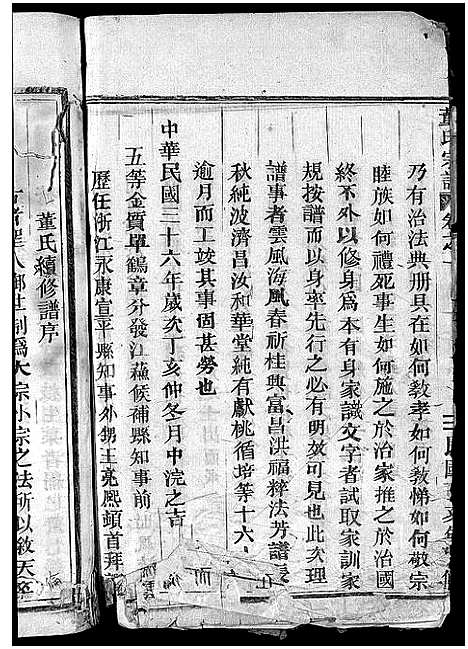 董氏宗譜
乃有治法典册具在如何教孝如何教悌如何敬宗
睦族如何禮死事生如何施之於治家推之於治國
終不外以修身爲本有身家識文字者試取家訓家
規按譜而以身率先行之必有明效可見也此次理
譜事者雲風海風春祈桂興富昌洪福粹法芳譜長
秋純波濟昌汝和華堂純有獻桃循培等十六人
逾月而工竣其事固甚勞也
中華民國三十六年歲次丁亥仲冬月中浣之吉
五等金質單鶴章分發江蘇候補縣知事前
歷任浙江永康宣平縣知事外甥王亮熙頓首拜
董氏續修譜序
古者聖人御世制爲大宗小宗之法所以敘天